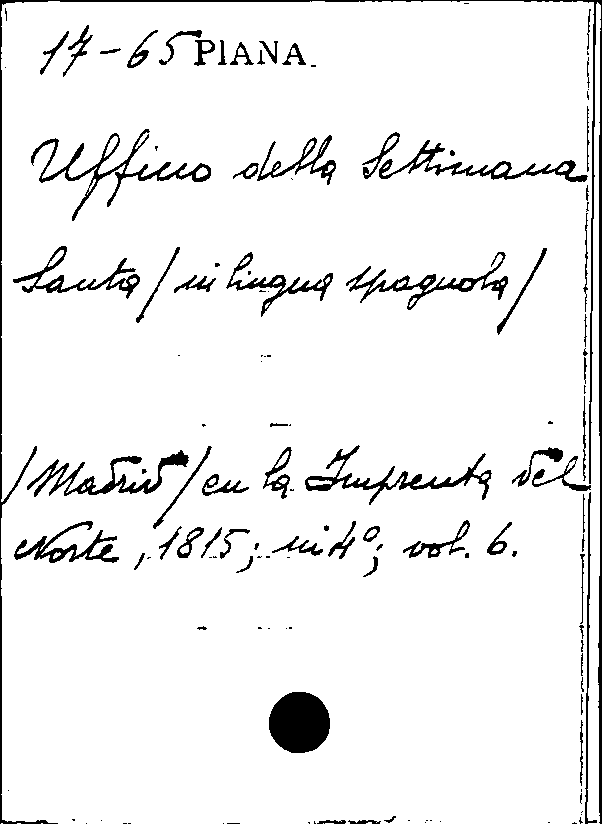 17-65 PIANA.
Uffico della Settimana
Santa / in lingua spagnola /
/ Madrid / en la Imprenta del
Norte, 1815; in 4º; vol. 6.